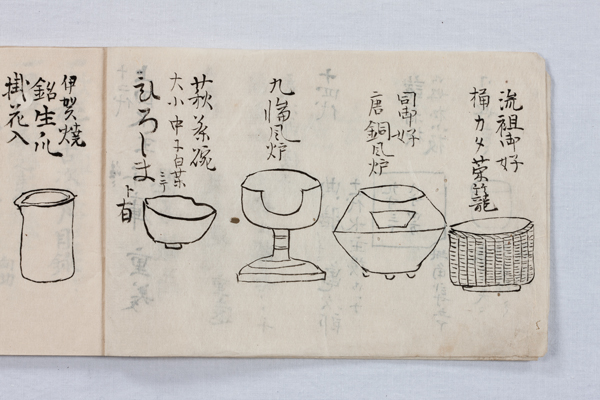 流祖御好
桶カタ菜籠
同御好
唐銅風炉
九臨風炉
萩茶碗
大小中ニ白菜
ひろしま
ト有
伊賀焼
銘生爪
掛花入